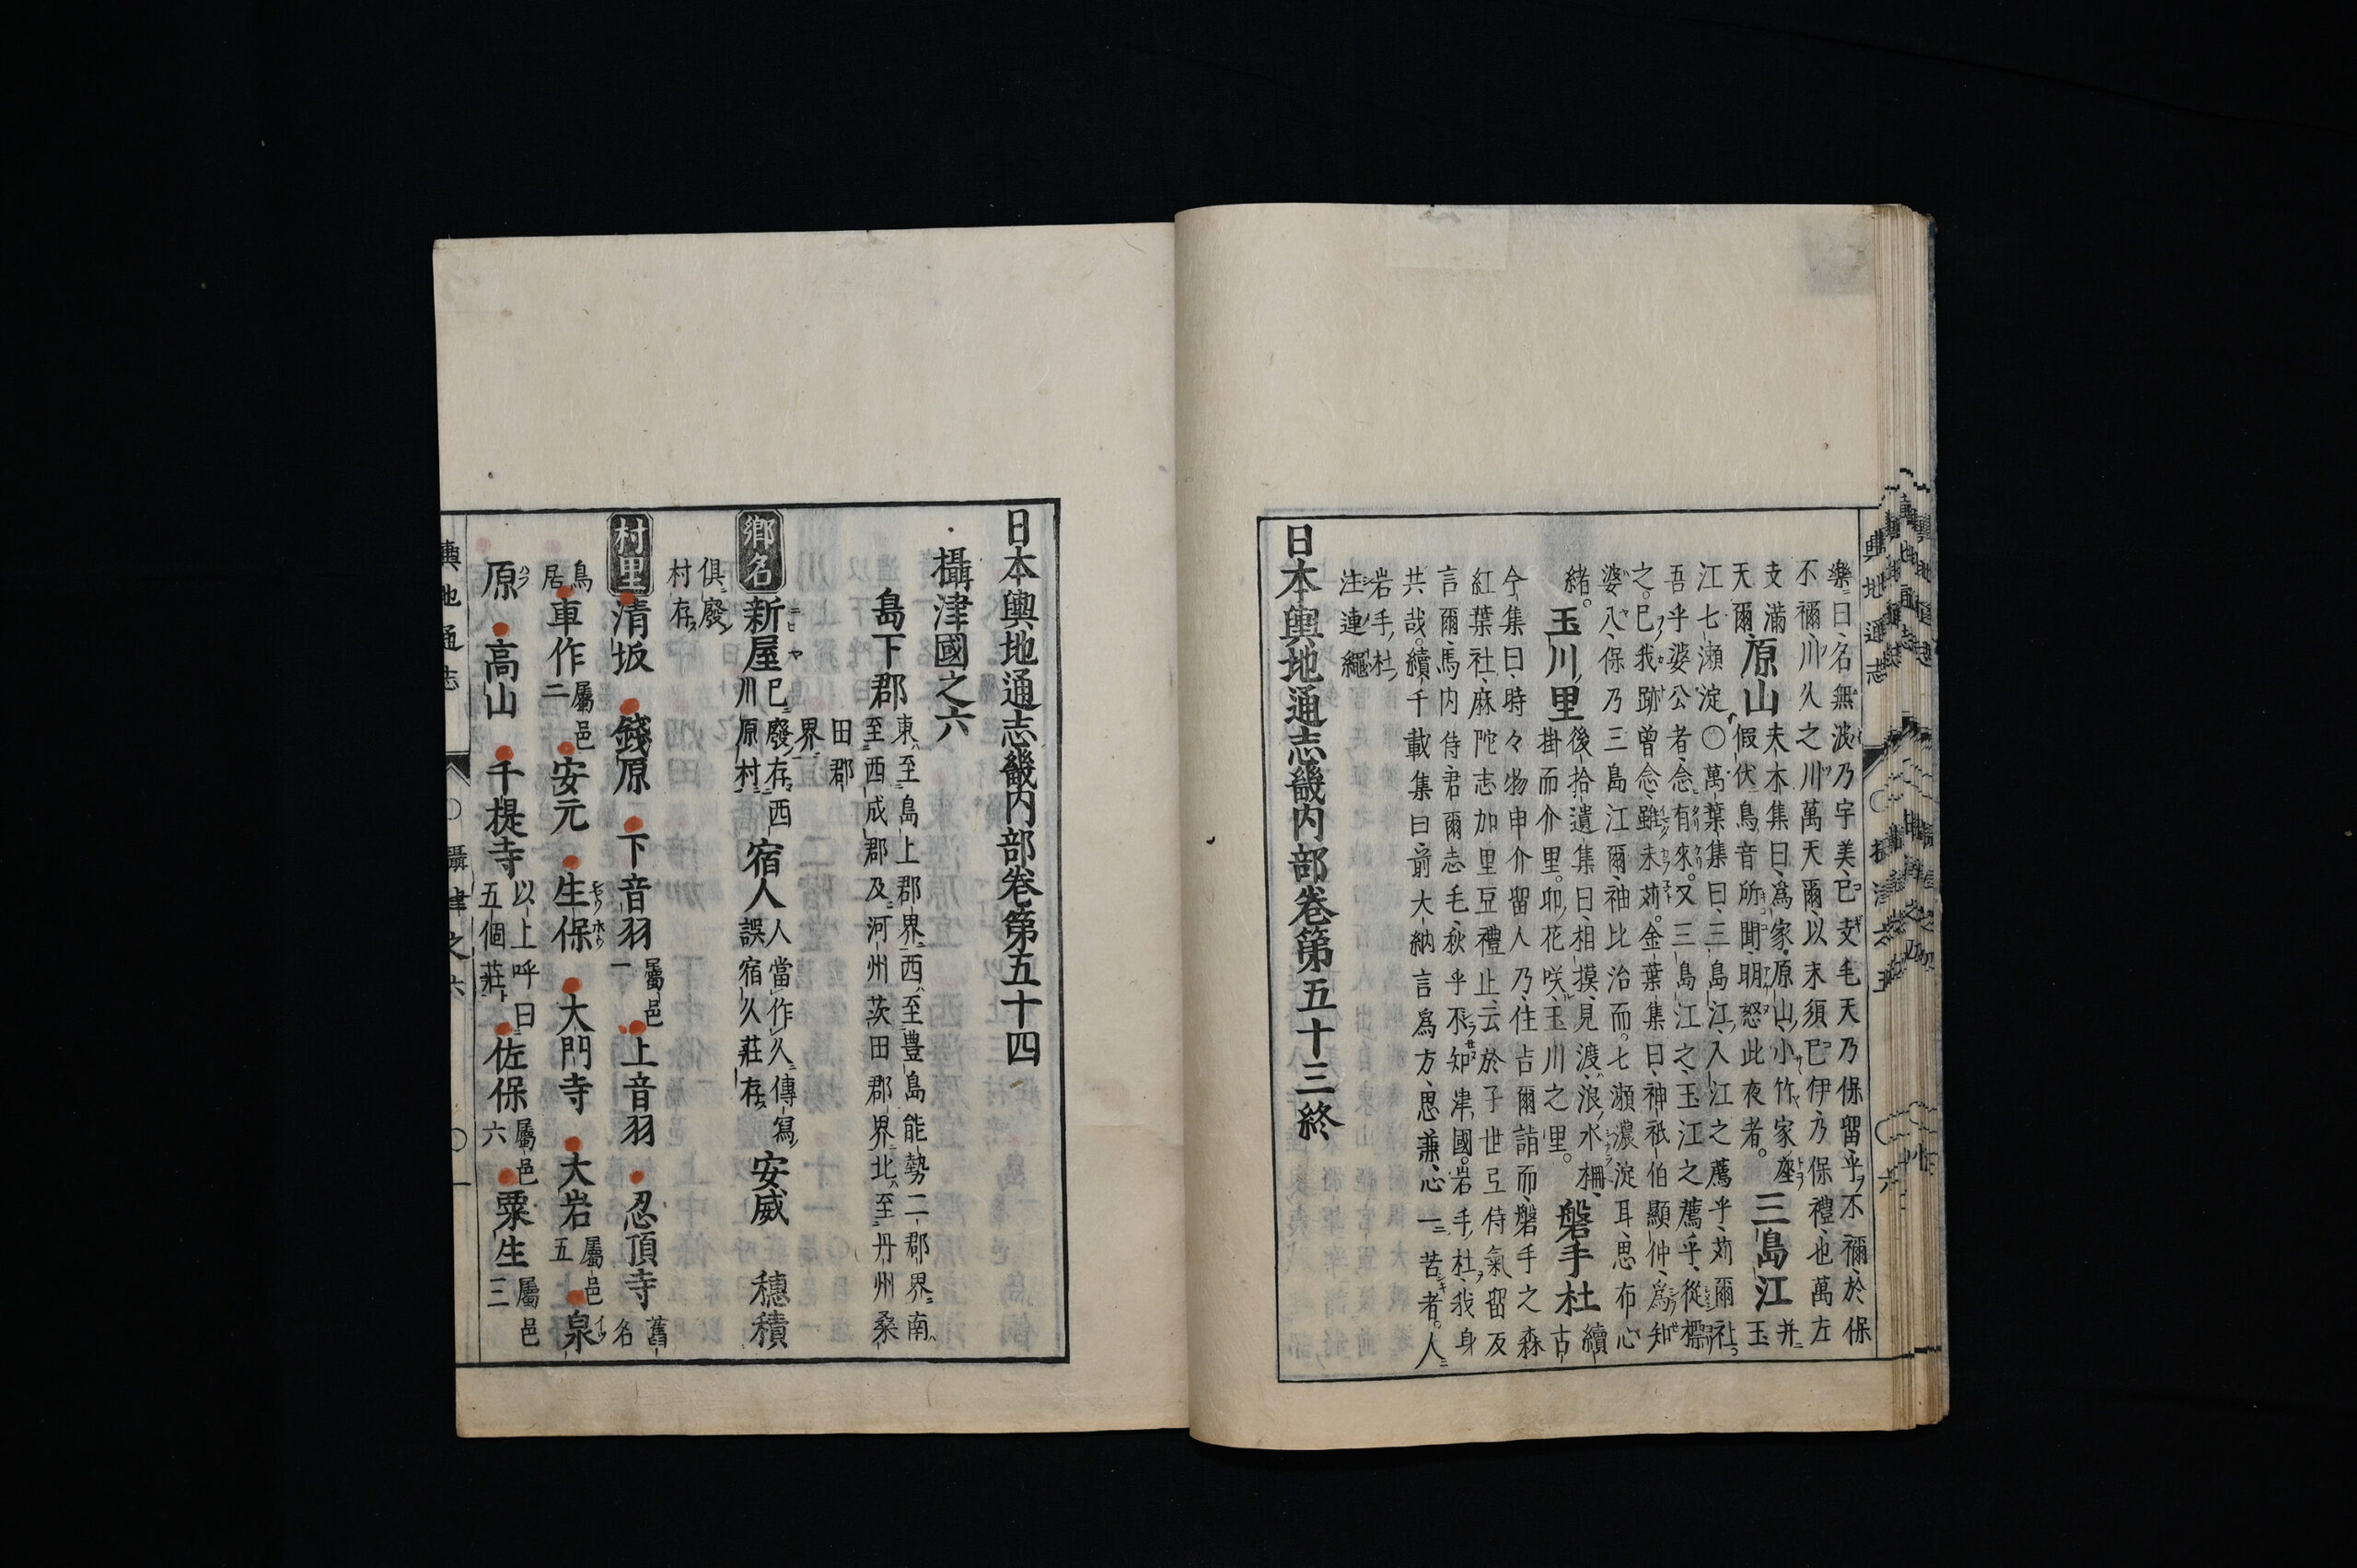 樂曰名無波乃宇美巳支毛天乃保留乎不禰於保
不禰川久之川萬天爾以末須巳伊乃保禮也萬左
支滿 夫木集曰爲家原山小竹家座 三島江 并
天爾 原山 假伏鳥音所聞明怒此夜者 玉
江七瀬淀〇萬葉集曰三島江入江之薦乎苅爾社
吾乎婆公者念有來又三島江之玉江之薦乎從標
之巳我跡曾念雖未苅金葉集曰神祇伯顯仲爲知
婆八保乃三島江爾袖比治而七瀬濃淀耳思布心
緒 玉川里 後拾遺集曰相摸見渡浪水柵 磐手杜 續
掛而介里卯花咲玉川之里 古
今集曰時々物申介留人乃住占爾詣而磐手之森
紅葉社麻陀志加里豆禮止云於子世弖侍氣留反
言爾馬内侍君爾志毛秋乎不知津國岩手杜我身
共哉續千載集曰前大納言爲方思兼心一苦者人
岩手杜
注連繩
日本輿地通志畿内部卷第五十三終
日本輿地通志畿内部卷第五十四
攝津國之六
島下郡 東至島上郡界西至豊島能勢二郡界南
至西成郡及河州茨田郡界北至丹州桑
田郡
界
鄉名 新屋 巳廢存西 宿人 人當作久傳寫 安威 穗積
川原村 誤宿久莊存
俱廢
村存
村里 清坂 錢原 下音羽 屬邑一 上音羽 忍頂寺 舊名
鳥居 車作 屬邑二 安元 生保 大門寺 大岩 屬邑五 泉
原 高山 千提寺 以上呼曰五個莊 佐保 屬邑六 粟生 屬邑三